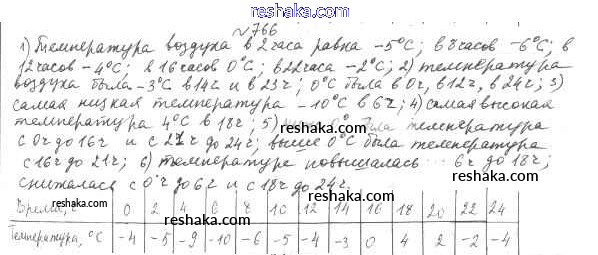 reshaka.com
№766
1) Температура воздуха в 2 часа равна -5°С; в 8 часов -6°С; в
12 часов -4°С; в 16 часов 0°С; в 22 часа -2°С; 2) температура
воздуха была -3°С в 14ч и в 23ч; 0°С была в 0ч, в 12ч, в 24ч; 3)
самая низкая температура -10°С в 6ч; 4) самая высокая
температура 4°С в 18ч; 5) 0° была температура
с 0ч до 16ч и с 21ч до 24ч; выше 0°С была температура
с 16ч до 21ч; 6) температура повышалась 6ч до 18ч;
снижалась с 0ч до 6ч и с 18ч до 24ч.
Время, ч 0 2 4 6 8 10 12 14 16 18 20 22 24
Температура, °С -4 -5 -9 -10 -6 -5 -4 -3 0 4 2 -2 -4
reshaka.com